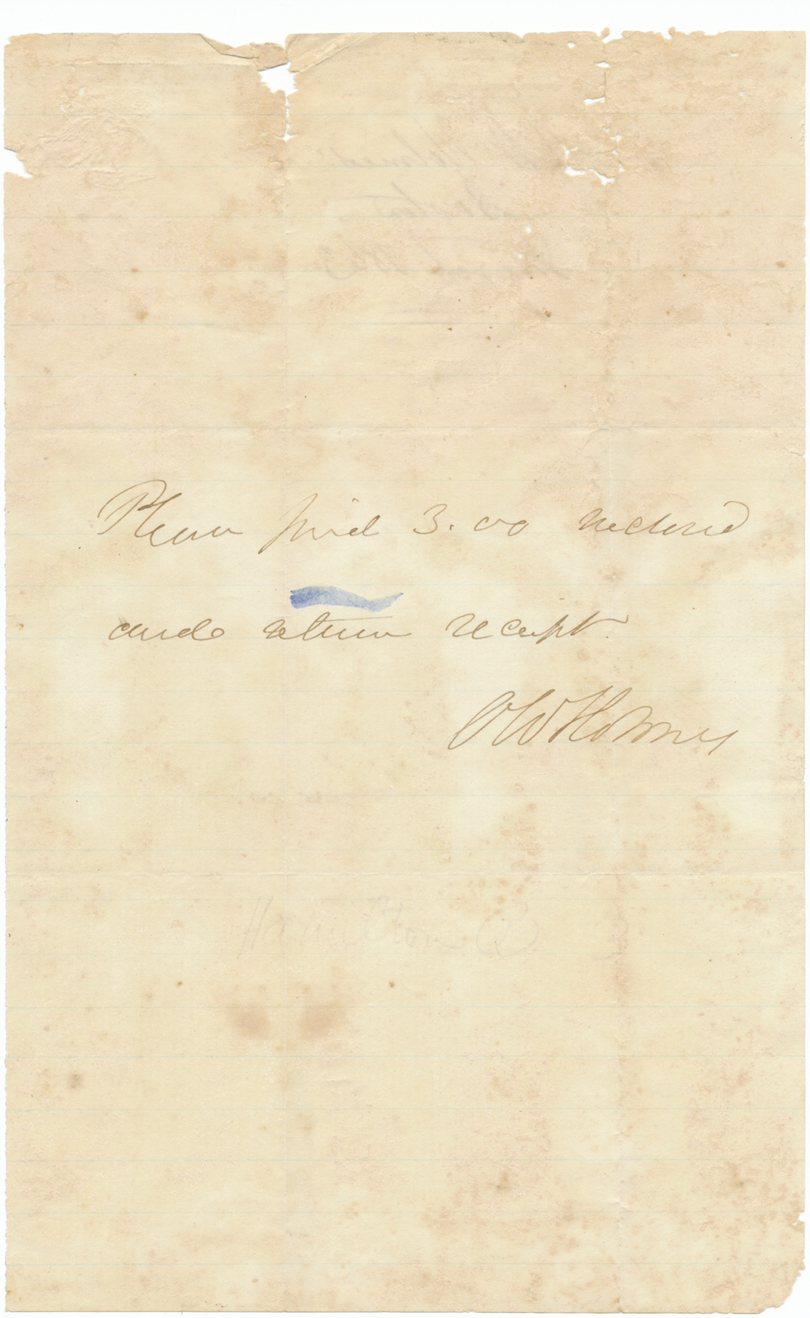 Please find 3.00 inclosed
and return receipt.
O W Holmes
Hamilton